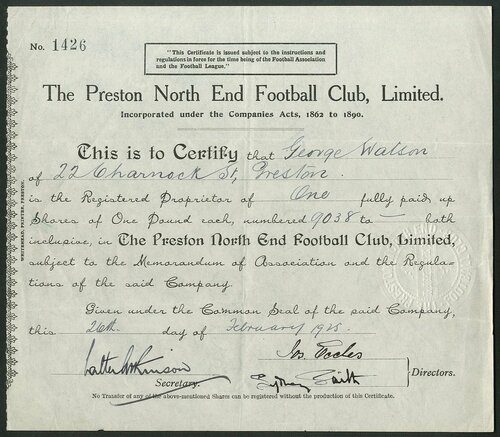 No. 1426
"This Certificate is issued subject to the instructions and
regulations in force for the time being of the Football Association
and the Football League."
The Preston North End Football Club, Limited.
Incorporated under the Companies Acts, 1862 to 1890.
This is to Certify that George Watson
of 22 Charnock St, Preston
is the Registered Proprietor of One fully paid up
Shares of One Pound each, numbered 9038 to — both
inclusive, in The Preston North End Football Club, Limited,
subject to the Memorandum of Association and the Regula-
tions of the said Company.
Given under the Common Seal of the said Company,
this 26th day of February 1925.
Jos. Eccles
Secretary.
Directors.
No Transfer of any of the above-mentioned Shares can be registered without the production of this Certificate.
WHITEHEAD, PRINTER, PRESTON.